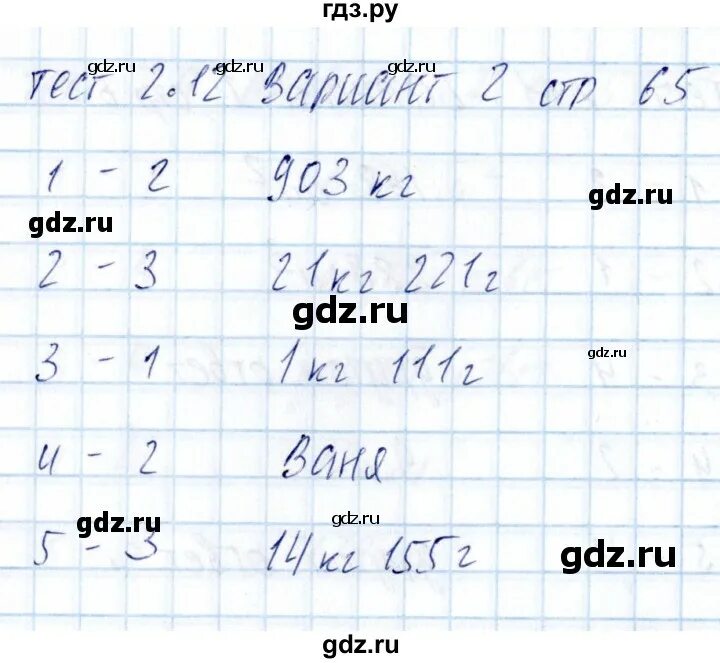 гдз.ру
gdz.ru gdz.ru gdz.ru
тест 2.12 вариант 2 стр 65
1 - 2 903 кг
gdz.ru gdz.ru
2 - 3 21 кг 221 г
gdz.ru
3 - 1 1 кг 111 г
gdz.ru
4 - 2 Ваня
gdz.ru gdz.ru
5 - 3 14 кг 155 г
gdz.ru
gdz.ru